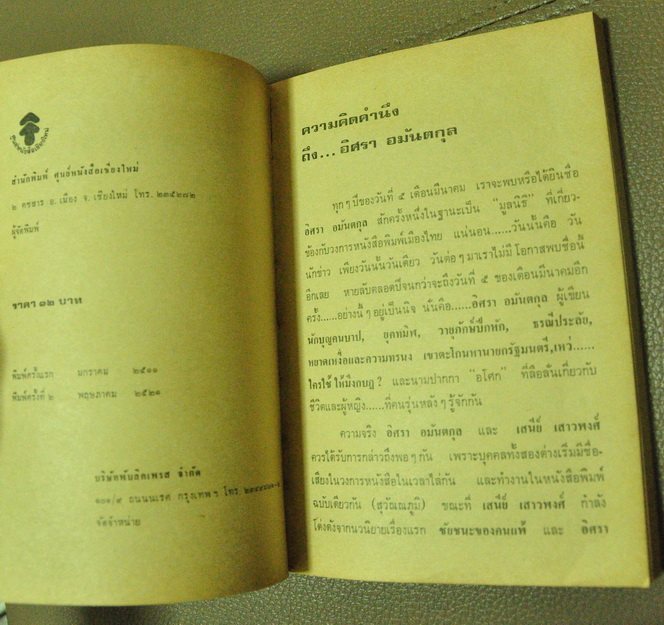 ศูนย์หนังสือเชียงใหม่
สำนักพิมพ์ ศูนย์หนังสือเชียงใหม่
๖ คชสาร อ.เมือง จ.เชียงใหม่ โทร. ๒๓๕๒๗๒
ผู้จัดพิมพ์
ราคา ๑๒ บาท
พิมพ์ครั้งแรก มกราคม ๒๕๑๑
พิมพ์ครั้งที่ ๒ พฤษภาคม ๒๕๒๑
บริษัทพับลิคเพรส จำกัด
๑๐๑/๕ ถนนนเรศ กรุงเทพฯ โทร.
จัดจำหน่าย
ความคิดคำนึง
ถึง... อิศรา อมันตกุล
ทุกๆ ปีของวันที่ ๕ เดือนมีนาคม เราจะพบหรือได้ยินชื่อ
อิศรา อมันตกุล สักครั้งหนึ่งในฐานะเป็น “มูลนิธิ” ที่เกี่ยว-
ข้องกับวงการหนังสือพิมพ์เมืองไทย แน่นอน......วันนั้นคือ วัน
นักข่าว เพียงวันนั้นวันเดียว วันต่อๆ มาเราไม่มีโอกาสพบชื่อนี้
อีกเลย หายลับตลอดปีจนกว่าจะถึงวันที่ ๕ ของเดือนมีนาคมอีก
ครั้ง......อย่างนี้ๆ อยู่เป็นนิจ นั่นคือ......อิศรา อมันตกุล ผู้เขียน
นักบุญคนบาป, ยุคทมิฬ, วายุภักษ์ปีกหัก, ธรณีประลัย,
หยาดเหงื่อและความทรนง เขาตะโกนหานายกรัฐมนตรี,เหว่......
ใครใช้ให้มึงกบฏ? และนามปากกา “อโศก” ที่ลือลั่นเกี่ยวกับ
ชีวิตและผู้หญิง......ที่คนรุ่นหลังๆ รู้จักกัน
ความจริง อิศรา อมันตกุล และ เสนีย์ เสาวพงศ์
ควรได้รับการกล่าวถึงพอๆ กัน เพราะบุคคลทั้งสองต่างเริ่มมีชื่อ-
เสียงในวงการหนังสือในเวลาไล่กัน และทำงานในหนังสือพิมพ์
ฉบับเดียวกัน (สุวัณณภูมิ) ขณะที่ เสนีย์ เสาวพงศ์ กำลัง
โด่งดังจากนวนิยายเรื่องแรก ชัยชนะของคนแพ้ และ อิศรา